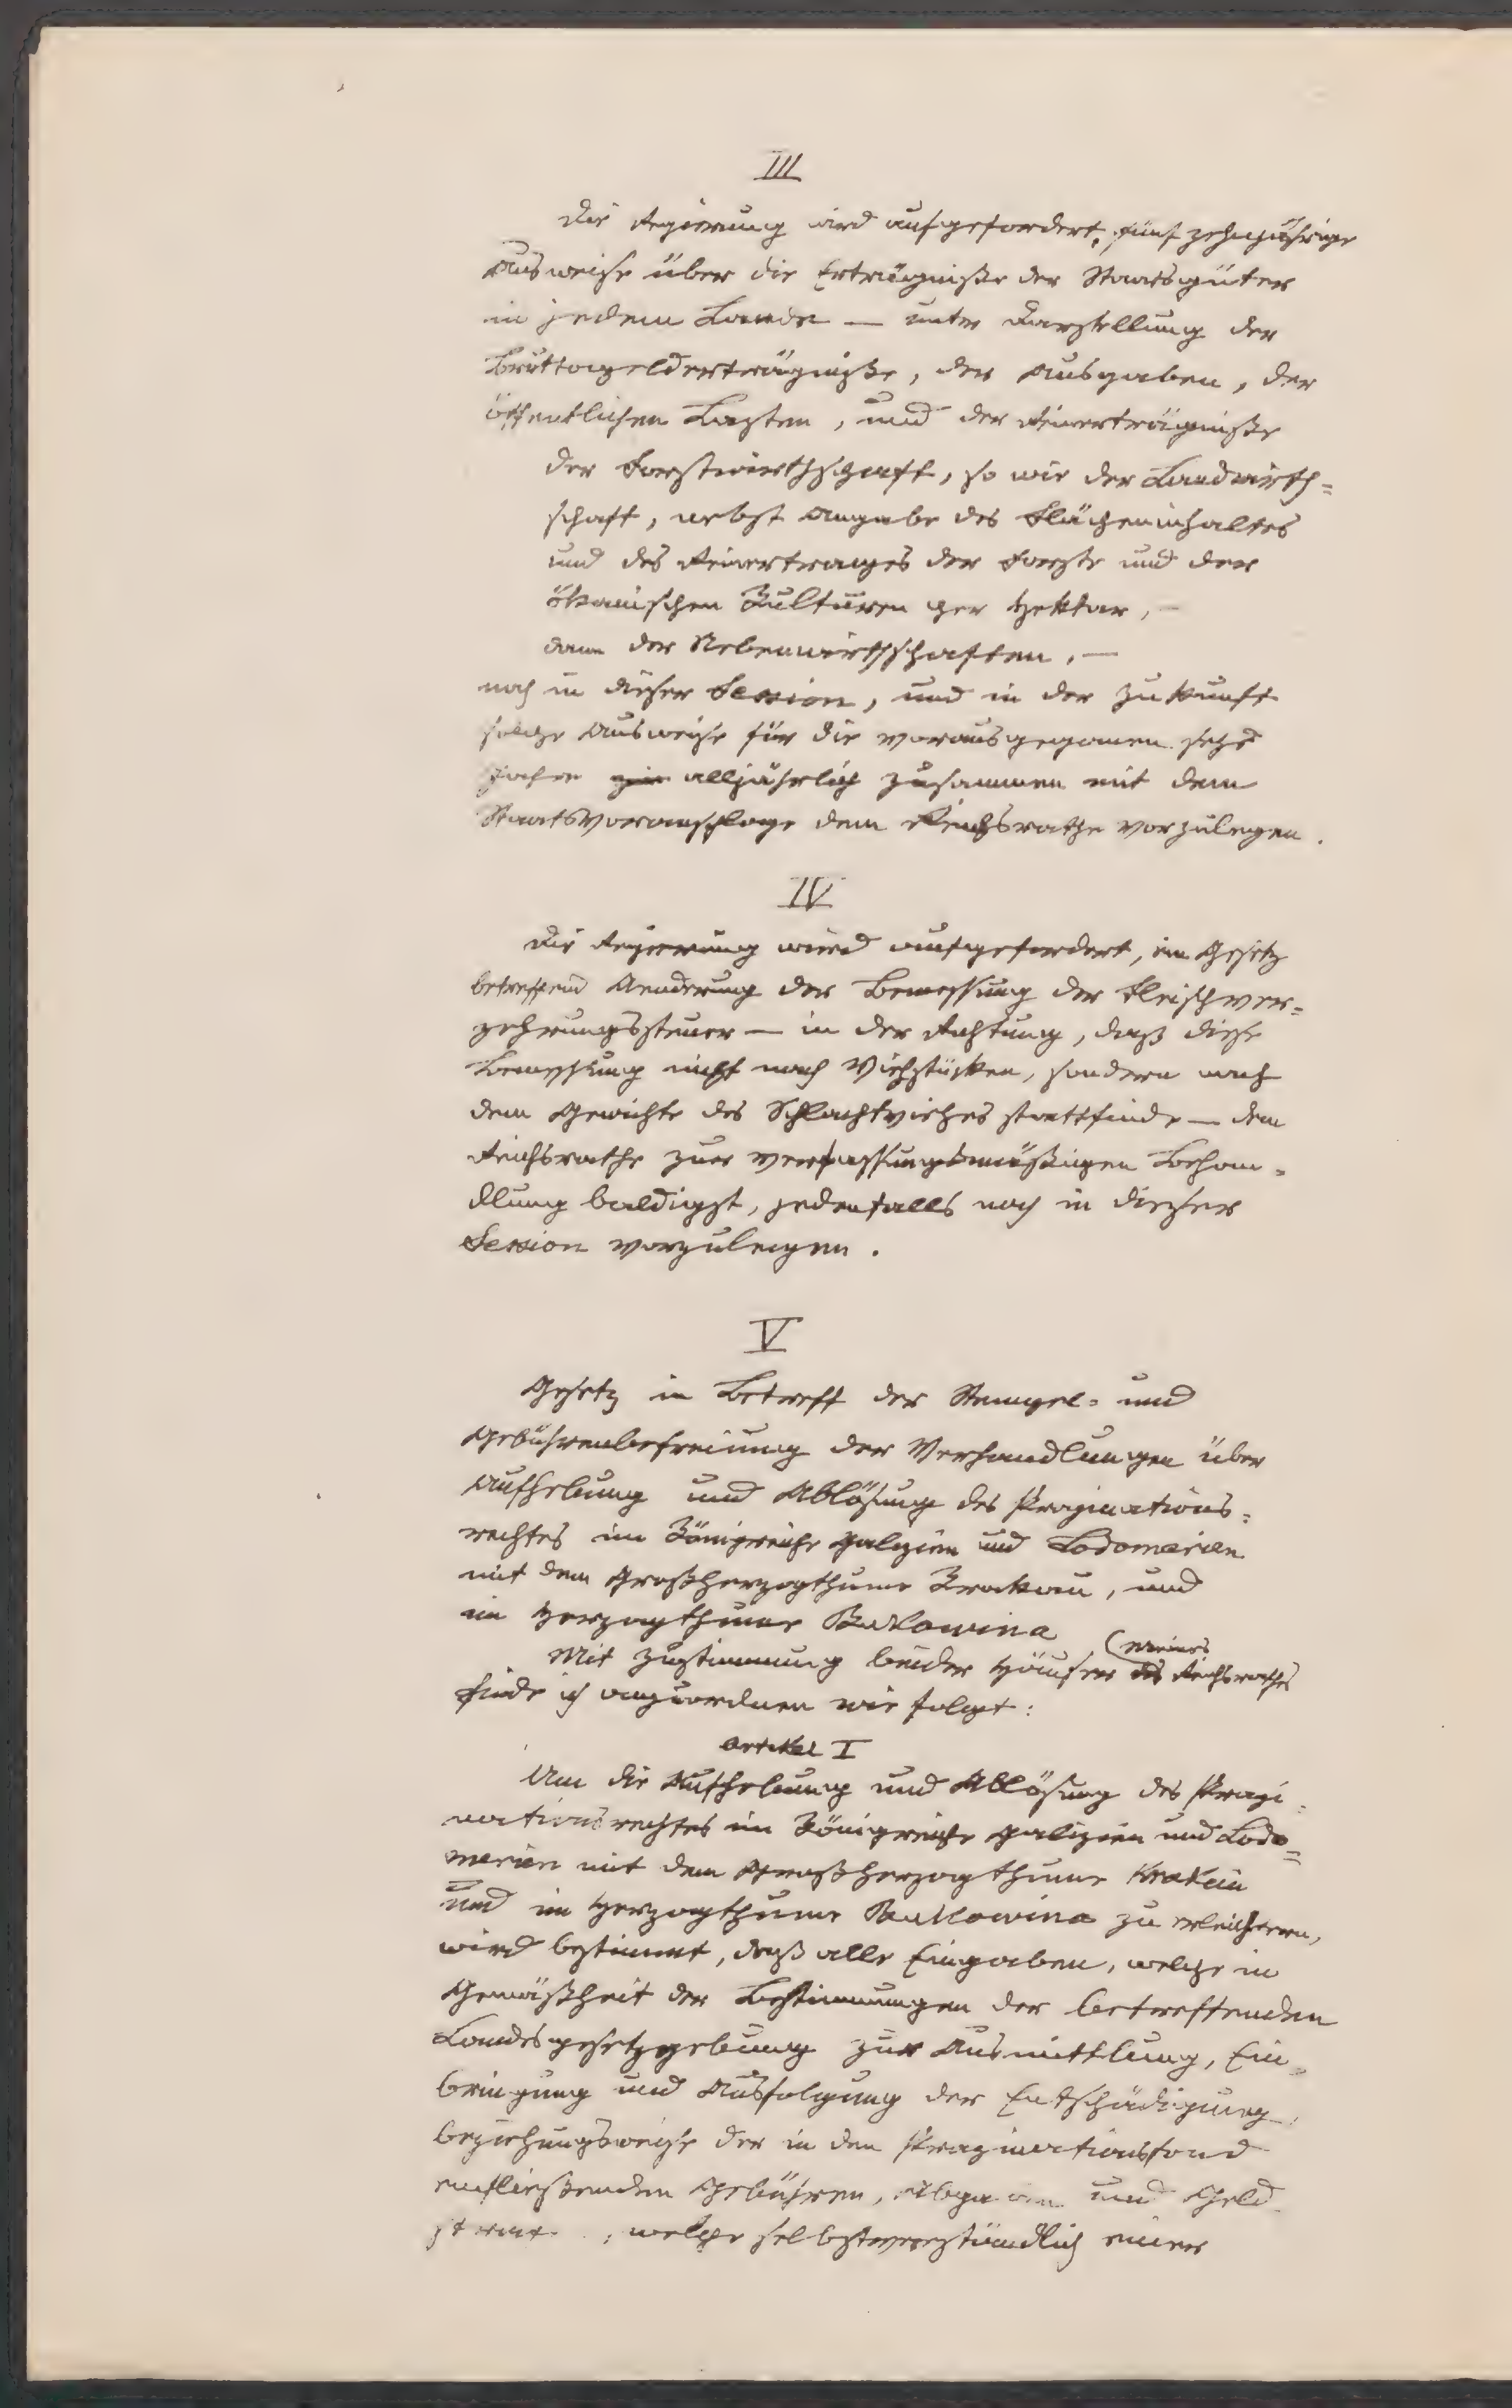 III
Die Regierung wird aufgefordert, fünf zehnjährige
Ausweise über die Erträgniße der Staatsgüter
in jedem Lande — unter Darstellung der
Bruttogelderträgniße, der Ausgaben, der
öffentlichen Lasten, und der Reinerträgniße
der Forstwirthschaft, so wie der Landwirth=
schaft, nebst Angabe des Flächeninhaltes
und des Reinertrages der Forste und der
ökonischen Kulturen per Hektar, —
dann der Nebenwirthschaften, —
noch in dieser Session, und in der Zukunft
solche Ausweise für die vorausgegangenen sechs
Jahre alljährlich zusammen mit dem
Staatsvoranschlage dem Reichsrathe vorzulegen.
IV
Die Regierung wird aufgefordert, ein Gesetz
betreffend Aenderung der Bemessung der Fleischver=
zehrungssteuer — in der Richtung, daß diese
Bemessung nicht nach Viehstücken, sondern nach
dem Gewichte des Schlachtviehes stattfinde — dem
Reichsrathe zur verfassungsmäßigen Behan=
dlung baldigst, jedenfalls noch in dieser
Session vorzulegen.
V
Gesetz in Betreff der Stempel= und
Gebührenbefreiung der Verhandlungen über
Aufhebung und Ablösung des Propinations=
rechtes im Königreiche Galizien und Lodomerien
mit dem Großherzogthume Krakau, und
im Herzogthume Bukowina
Mit Zustimmung beider Häuser meines des Reichsrathes
finde ich anzuordnen wie folgt:
Artikel I
Um die Aufhebung und Ablösung des Propi=
nationsrechtes im Königreiche Galizien und Lodo=
merien mit dem Großherzogthume Krakau
und im Herzogthume Bukowina zu erleichtern,
wird bestimmt, daß alle Eingaben, welche in
Gemäßheit der Bestimmungen der betreffenden
Landesgesetzgebung zur Ausmittlung, Ein=
bringung und Ausfolgung der Entschädigung,
beziehungsweise der in den Propinationsfond
einfließenden Gebühren, Abgaben und Geld
, welche selbstverständlich einer